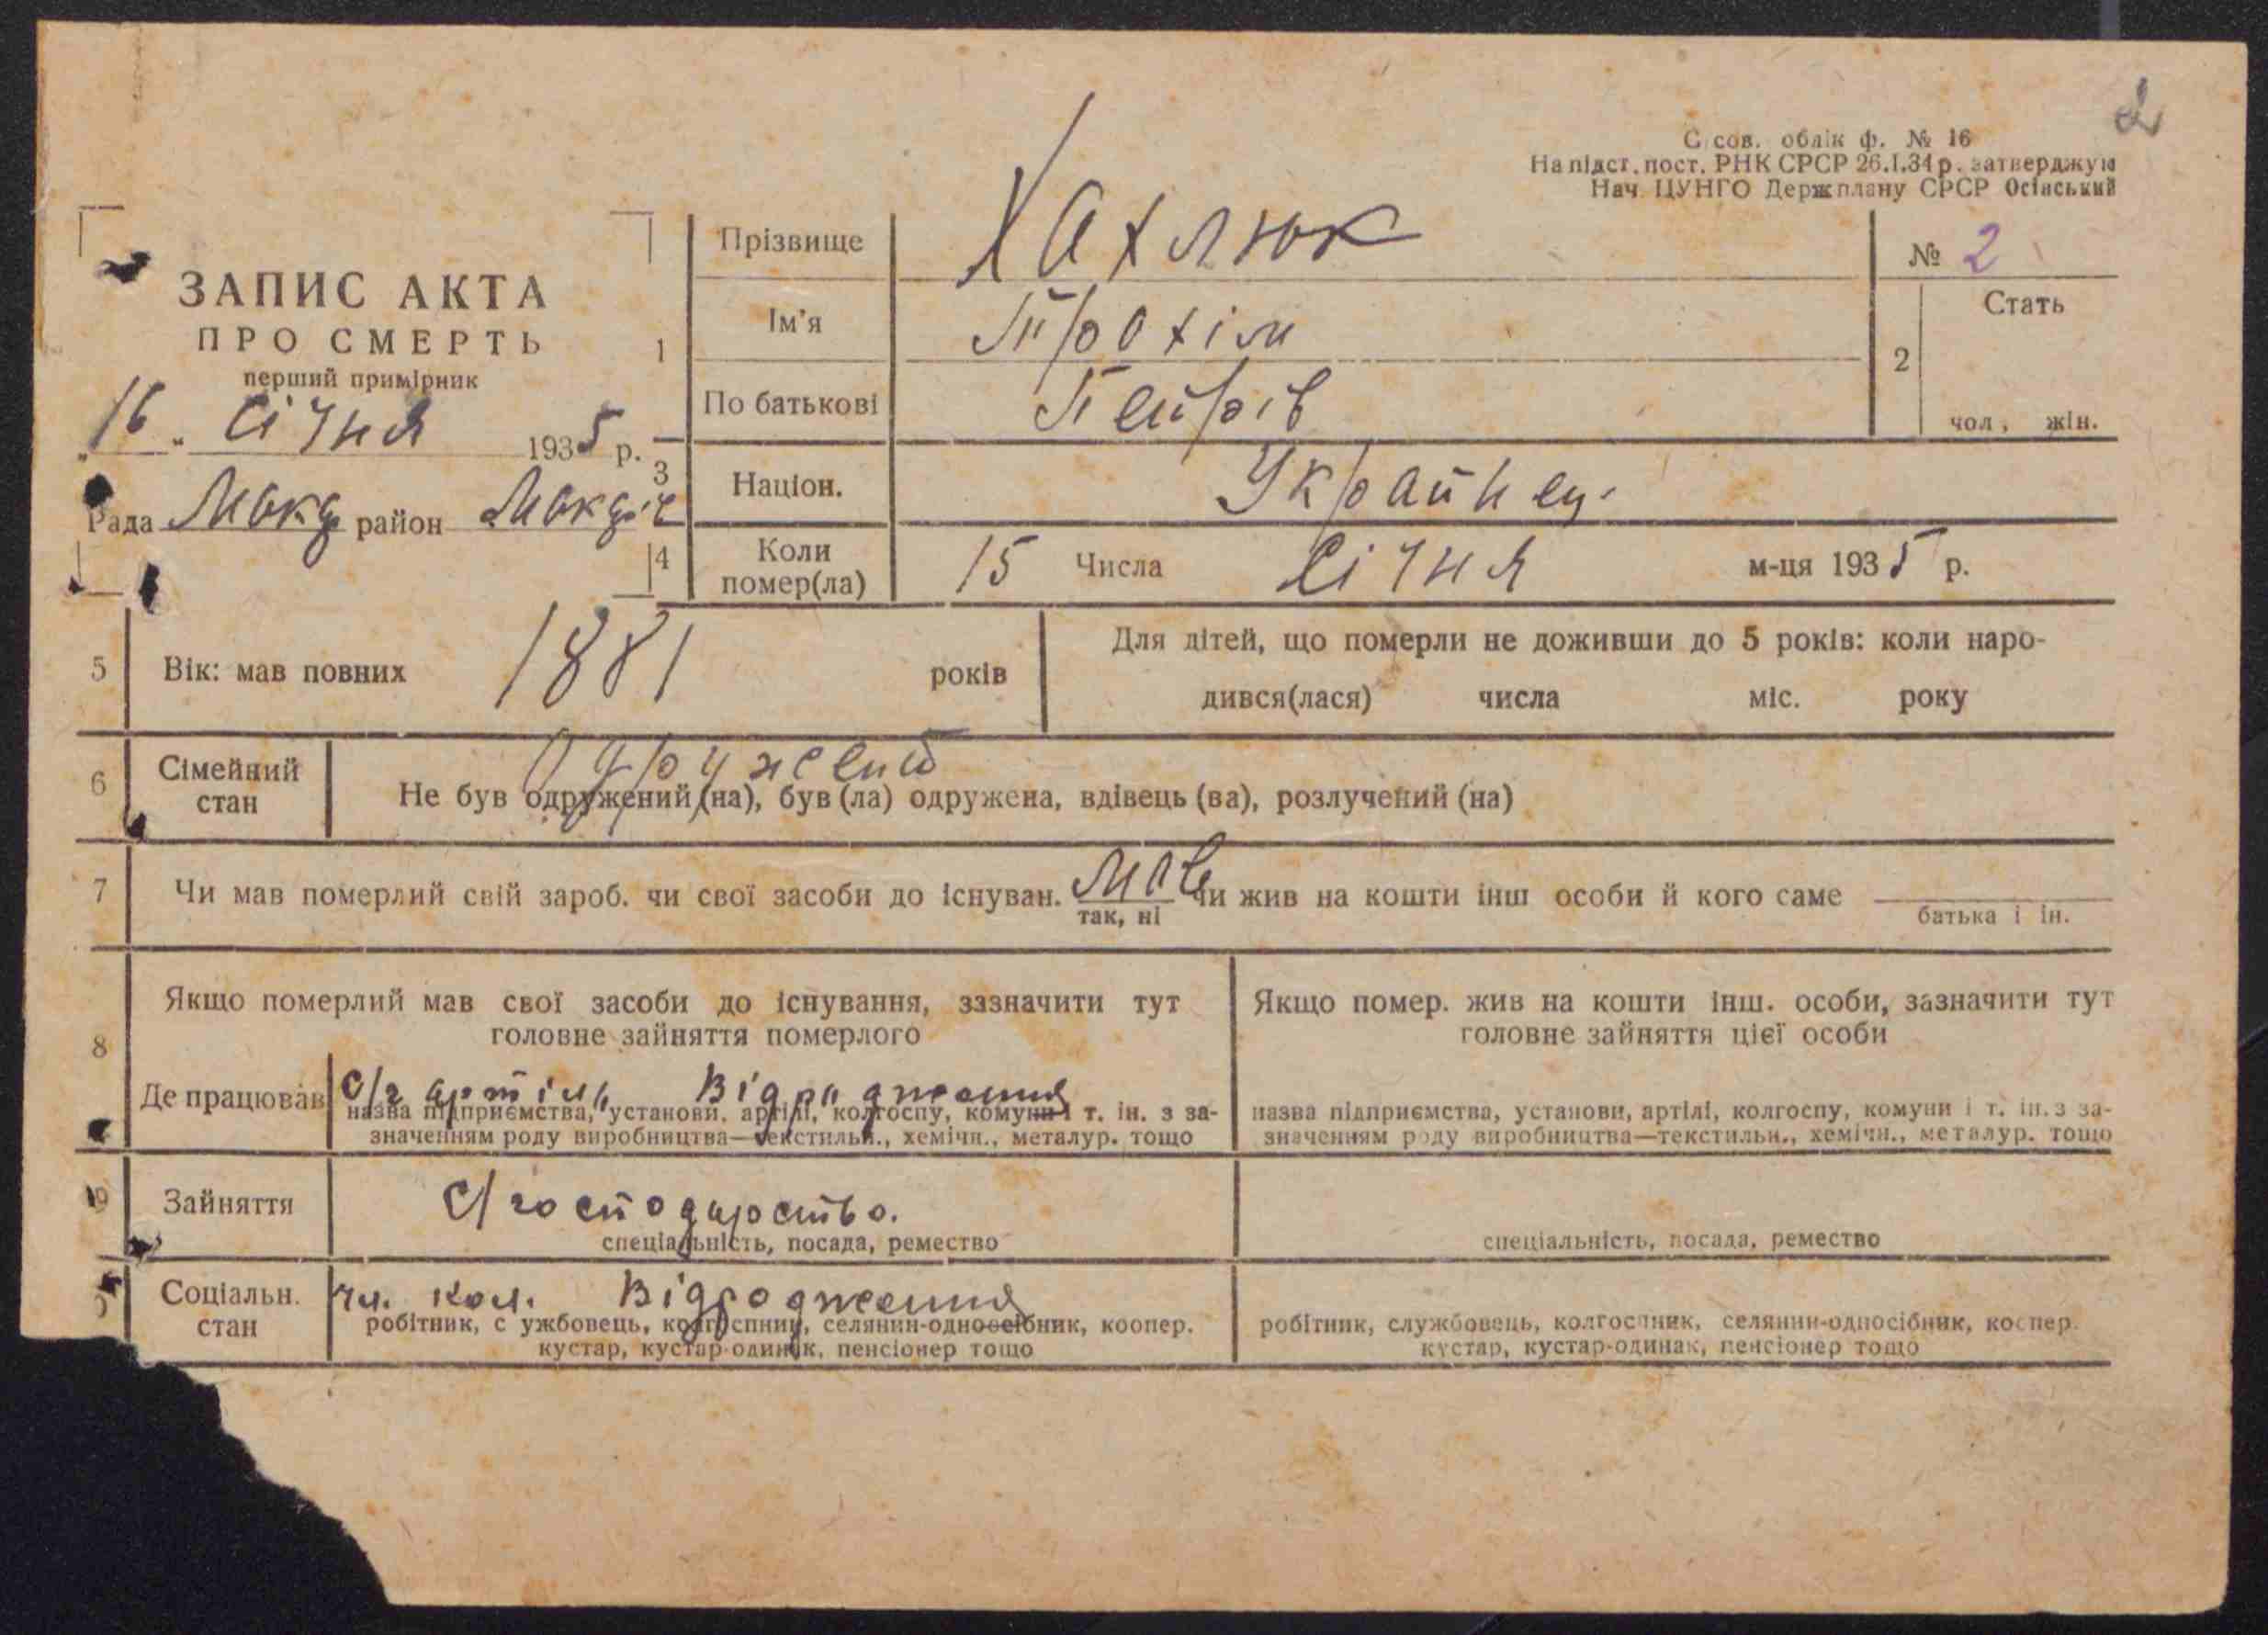 2
С сов. облік ф. № 16
На підст. пост. РНК СРСР 26.I.34 р. затверджую
Нач. ЦУНГО Держплану СРСР Осінський
ЗАПИС АКТА
ПРО СМЕРТЬ
перший примірник
"16" Січня 1935 р.
Рада Мокр район
1 Прізвище Хахлюк
Ім'я Трохім
По батькові Петрів
№ 2
2 Стать
чол., жін.
3 Націон. Украйнец.
4 Коли помер(ла) 15 Числа Січня м-ця 1935 р.
5 Вік: мав повних 1881 років
Для дітей, що померли не доживши до 5 років: коли наро-
дився(лася) числа міс. року
6 Сімейний стан
Одружений
Не був одружений (на), був (ла) одружена, вдівець (ва), розлучений (на)
7 Чи мав померлий свій зароб. чи свої засоби до існуван. мав чи жив на кошти інш особи й кого саме
так, ні
батька і ін.
8 Якщо померлий мав свої засоби до існування, зазначити тут
головне зайняття померлого
Де працював С/г артіль Відродження
назва підприємства, установи, артілі, колгоспу, комуни і т. ін. з за-
значенням роду виробництва—текстильн., хемічн., металур. тощо
Якщо помер. жив на кошти інш. особи, зазначити тут
головне зайняття цієї особи
назва підприємства, установи, артілі, колгоспу, комуни і т. ін. з за-
значенням роду виробництва—текстильн., хемічн., металур. тощо
9 Зайняття С/господарство.
спеціальність, посада, ремество
спеціальність, посада, ремество
Соціальн. стан
чл. кол. Відродження
робітник, с ужбовець, колгоспник, селянин-односібник, коопер.
кустар, кустар-одинак, пенсіонер тощо
робітник, службовець, колгоспник, селянин-односібник, коопер.
кустар, кустар-одинак, пенсіонер тощо